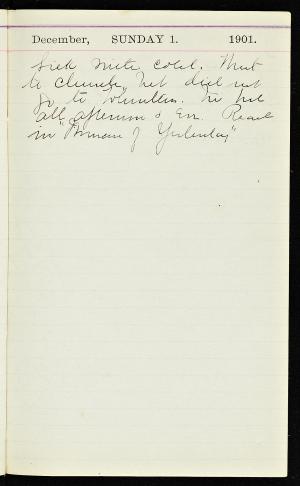 December, SUNDAY 1. 1901.
Sick with cold. Went
to church, but did not
go to
all afternoon & Eve. Read
in "Woman of Yesterday"